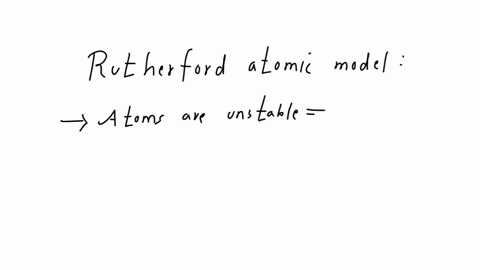 Rutherford atomic model :
→ Atoms are unstable =